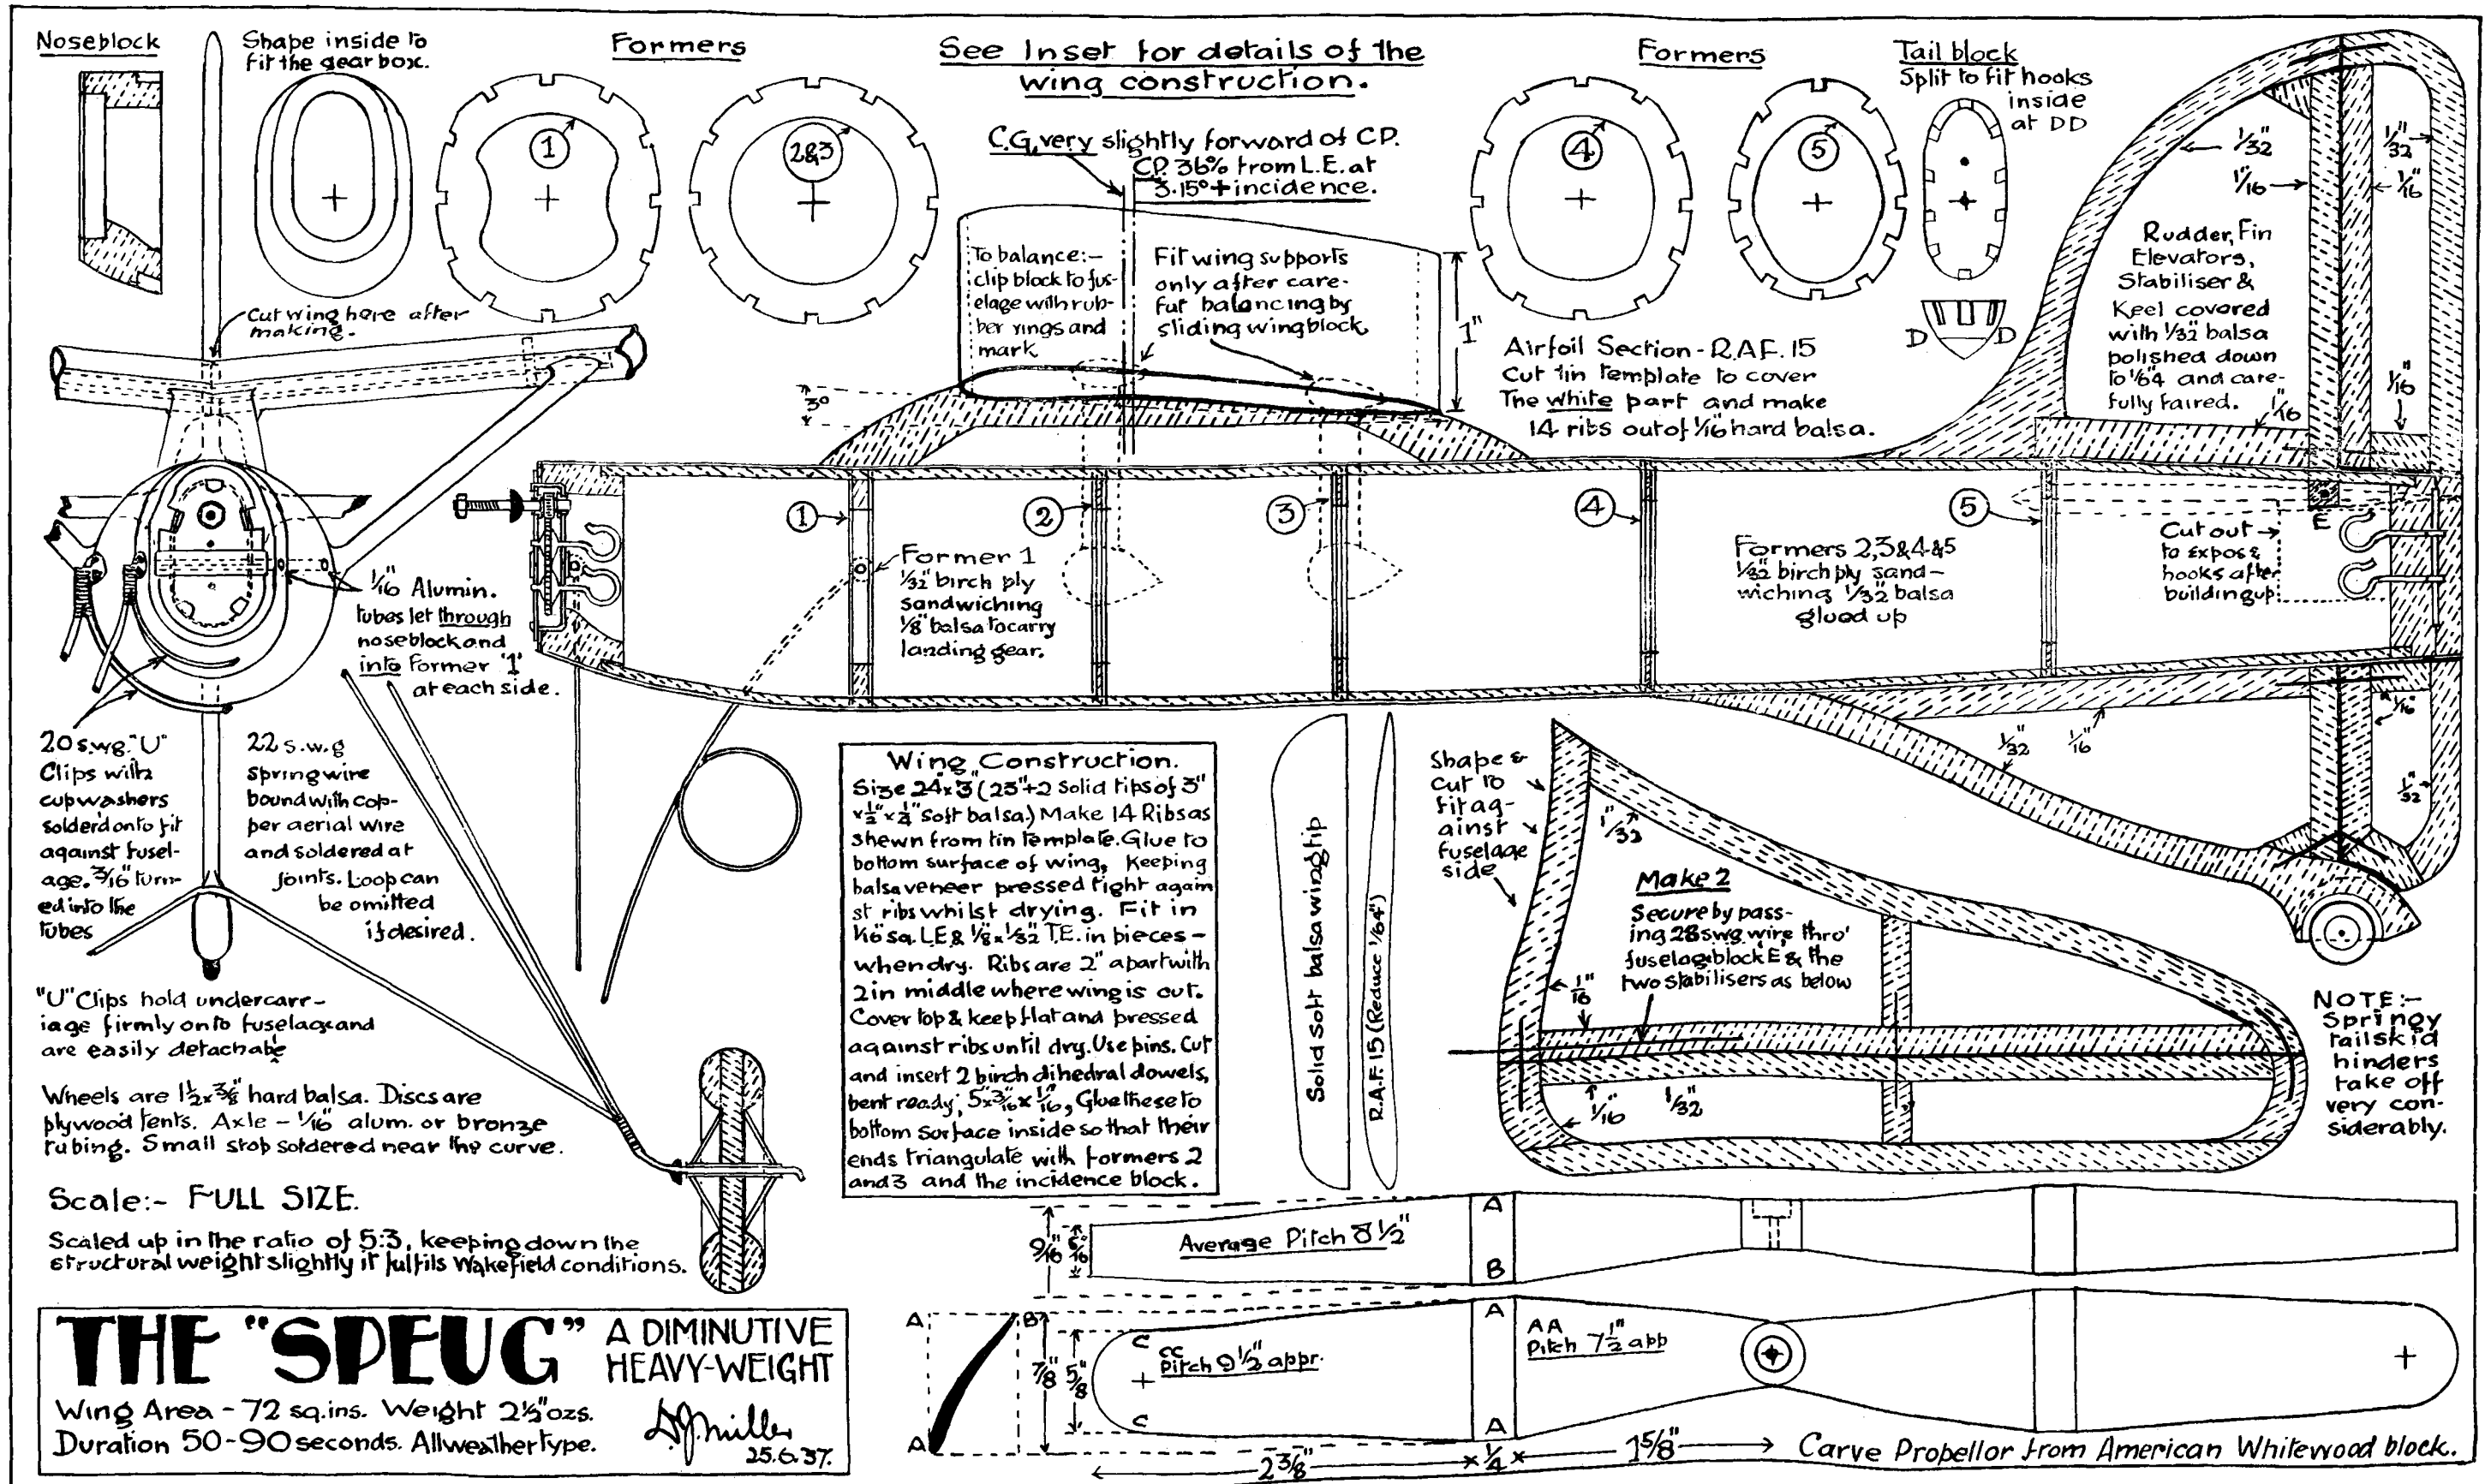 Noseblock
Shape inside to
fit the gear box.
Formers
1
2&3
See Inset for details of the
wing construction.
C.G. very slightly forward of CP.
CP. 36% from L.E. at
3·15° + incidence.
Formers
4
5
Tail block
Split to fit hooks
inside
at DD
D D
Cut wing here after
making.
To balance:-
clip block to fus-
elage with rub-
ber rings and
mark
Fit wing supports
only after care-
ful balancing by
sliding wingblock
1"
3°
Airfoil Section - R.A.F. 15
Cut tin template to cover
The white part and make
14 ribs out of 1/16" hard balsa.
1/32"
1/16"
1/32"
1/16"
Rudder, Fin
Elevators,
Stabiliser &
Keel covered
with 1/32" balsa
polished down
to 1/64 and care-
fully faired.
1/16"
1/16
1
2
3
4
5
E
Former 1
1/32" birch ply
sandwiching
1/8" balsa to carry
landing gear.
Formers 2,3&4&5
1/32" birch ply sand-
wiching 1/32" balsa
glued up
Cut out
to expose
hooks after
building up
1/16" Alumin.
tubes let through
noseblock and
into Former '1'
at each side.
20 s.w.g. "U"
Clips with
cup washers
solderd onto fit
against fusel-
age. 3/16" turn-
ed into the
tubes
22 s.w.g
spring wire
bound with cop-
per aerial wire
and soldered at
joints. Loop can
be omitted
if desired.
"U" Clips hold undercarr-
iage firmly onto fuselage and
are easily detachable
Wheels are 1½ x 3/8" hard balsa. Discs are
plywood tents. Axle - 1/16" alum. or bronze
tubing. Small stop soldered near the curve.
Scale:- FULL SIZE.
Scaled up in the ratio of 5:3, keeping down the
structural weight slightly it fulfils Wakefield conditions.
Wing Construction.
Size 24x3" (23"+2 Solid tips of 3"
x½"x¼" soft balsa.) Make 14 Ribs as
shewn from tin template. Glue to
bottom surface of wing, Keeping
balsa veneer pressed tight again
st ribs whilst drying. Fit in
1/16" sq. L.E & 1/8 x 1/32" T.E. in pieces -
when dry. Ribs are 2" apart with
2 in middle where wing is cut.
Cover top & keep flat and pressed
against ribs until dry. Use pins. Cut
and insert 2 birch dihedral dowels,
bent ready, 5"x3/16"x1/16, Glue these to
bottom surface inside so that their
ends triangulate with formers 2
and 3 and the incidence block.
Solid soft balsa wingtip
R.A.F. 15 (Reduce 1/64")
Shape &
cut to
fit ag-
ainst
fuselage
side
1/32"
Make 2
Secure by pass-
ing 28 swg wire thro'
fuselage block E & the
two stabilisers as below
1/16"
1/16"
1/32"
1/32"
1/16"
1/16"
1/32"
NOTE:-
Springy
tailskid
hinders
take off
very con-
siderably.
9/16"
5/16"
Average Pitch 8½"
A
B
A B
A
7/8"
5/8"
C
CC
Pitch 9½" appr.
C
A
A
AA
Pitch 7½" app
2 3/8"
¼
1 5/8"
Carve Propellor from American Whitewood block.
THE "SPEUG"
A DIMINUTIVE
HEAVY-WEIGHT
Wing Area - 72 sq.ins. Weight 2½" ozs.
Duration 50-90 seconds. All weather type.
D.J. Miller
25.6.37.